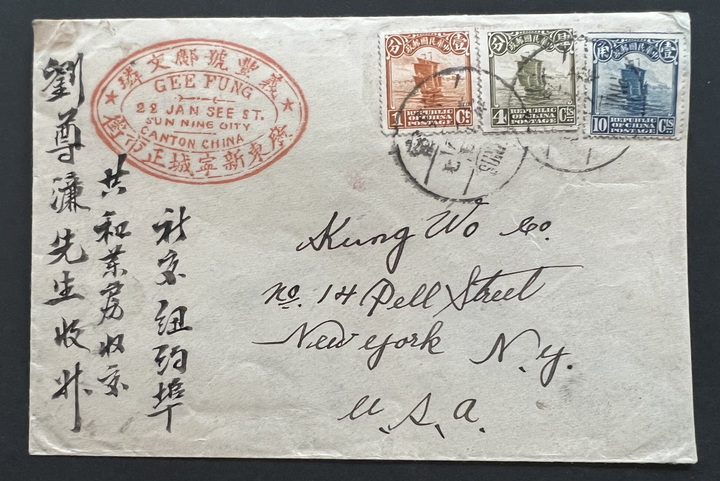 義豐號鄺文璘
GEE FUNG
22 JAN SEE ST.
SUN NING CITY
CANTON CHINA
廣東新寧城正市街
中華民國郵政
分 壹
1 REPUBLIC OF CHINA POSTAGE Cts
中華民國郵政
分
4 REPUBLIC OF CHINA POSTAGE Cts
中華民國郵政
10 REPUBLIC OF CHINA POSTAGE Cts
Kwng Wo Co.
No. 14 Pell Street
New York N.Y.
U.S.A.
祈交紐約埠
共和業房收交
劉尊濂先生收升